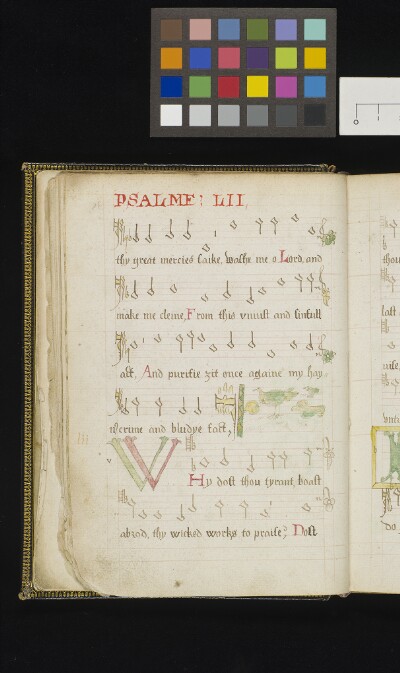 PSALME: LII,
thy great mercies saike, washe me o Lord, and
make me cleine, From this vniust and sinfull
act, And purifie ȝit once againe my hay
crime and bludye fact,
WHy dost thou tyrant, boast
abrod, thy wicked works to praise? Dost